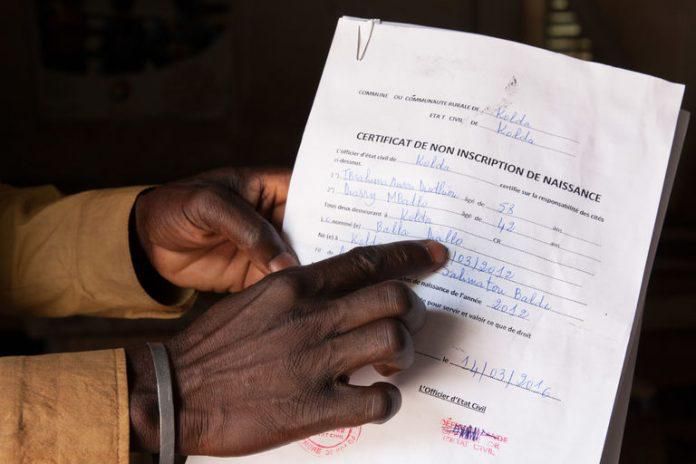 COMMUNE OU COMMUNAUTE RURALE DE Kolda
ETAT CIVIL DE Kolda
CERTIFICAT DE NON INSCRIPTION DE NAISSANCE
L'officier d'état civil de Kolda certifie sur la responsabilité des cités
ci-dessous.
1°) Ibrahima âgé de 58 ans
2°) Diarry MBallo âgé de 42 ans
Tous deux demeurant à Kolda CR.
Le nommé (e) Balla Diallo
Né (e) à Kolda /03/2012
Fil de Salimatou Balde
de naissance de l'année
2012
pour servir et valoir ce que de droit
le 14/03/2016
L'Officier d'Etat Civil